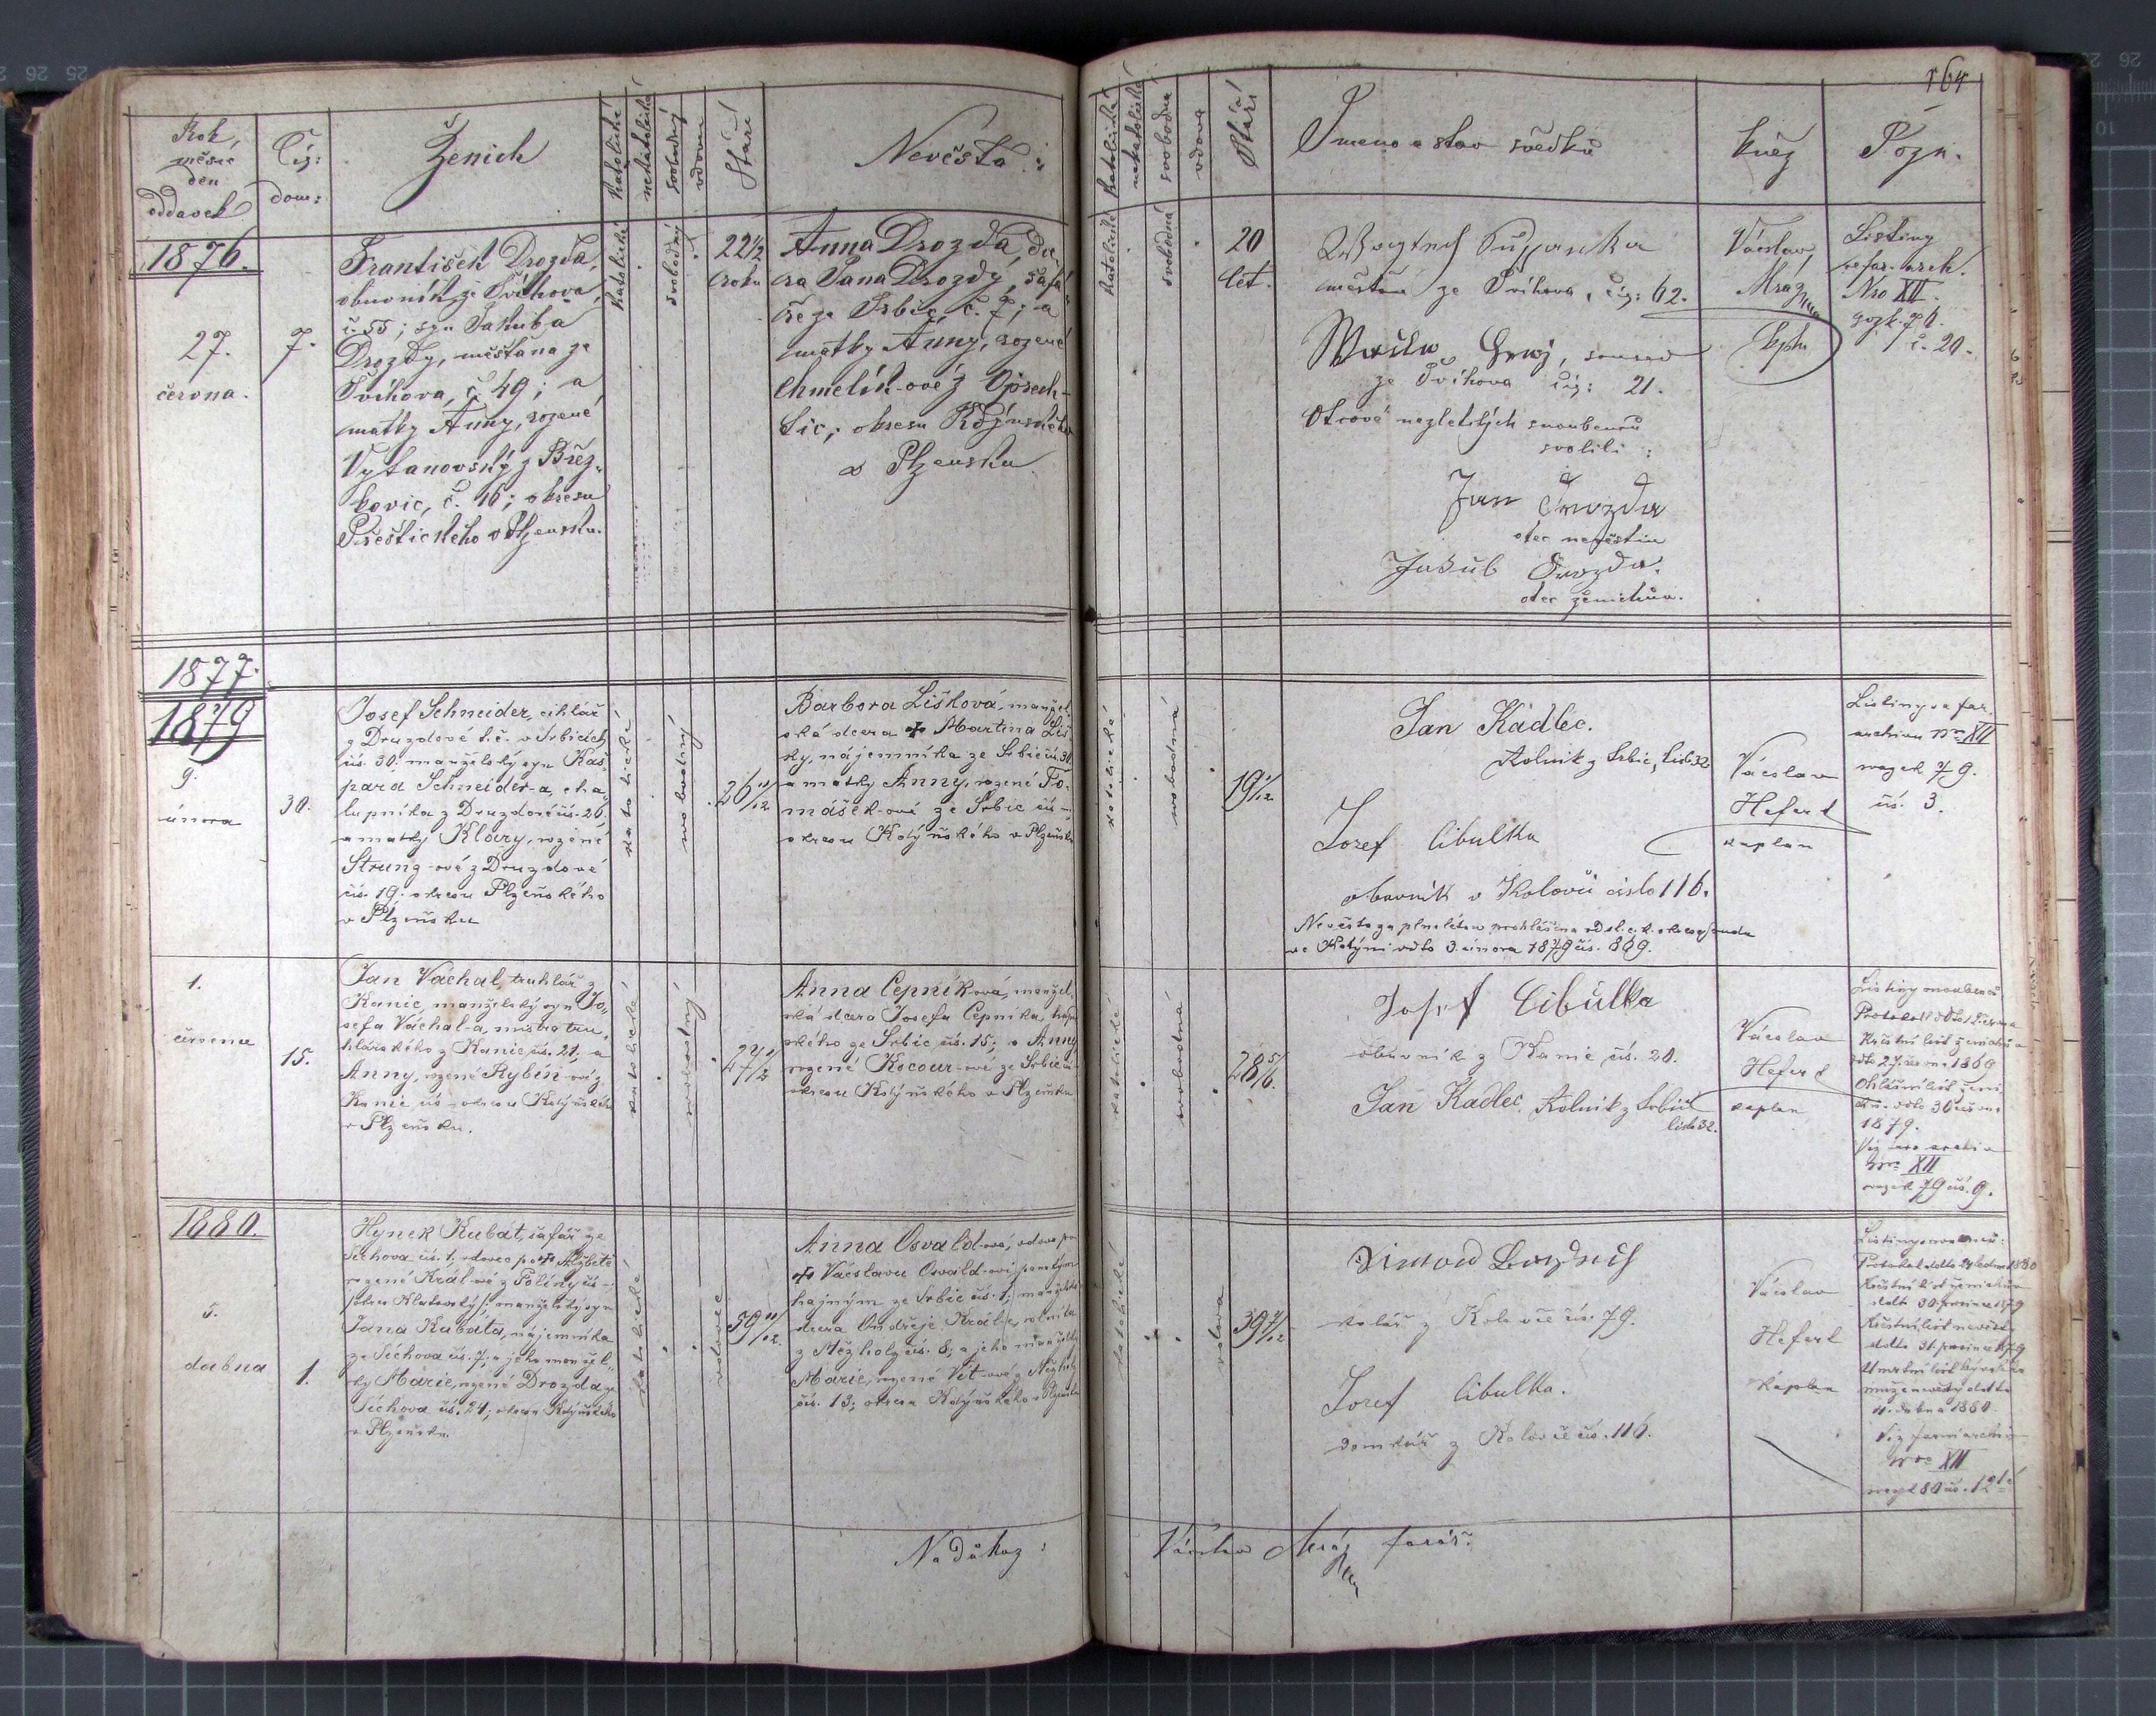 164
Rok,
měsíc
den
oddavek
Čís:
dom:
Ženich
Katolické
nekatolické
svobodný
vdovec
Stáří
Nevěsta:
Katolická
nekatolická
svobodná
vdova
Stáří
Jmeno a stav svědků
kněz
Pozn.
1876.
27.
června.
7.
František Drozda,
obuvník ze Švihova,
č. 55; syn Jakuba
Drozdy, měšťana ze
Švihova, č. 49; a
matky Anny, rozené
Vytanovský z Břez-
kovic, č. 16; okresu
Přeštického v Plzensku.
Katolické
svobodný
22 1/2
roku
Anna Drozda, dce-
ra Jana Drozdy, šafá-
ře ze Srbic, č. 7; a
matky Anny, rozené
Chmelík-ové z Úpsech-
tic; okresu Kdýnského
v Plzensku
Katolické
svobodná
20
let.
měštan ze Švihova, čís: 62.
soused
ze Švihova čís: 21.
Otcové nezletilých snoubenců
svolili:
Jan Drozda
otec nevěstin
Jakub Drozda.
otec ženichův.
Václav
Mráz
kpln
Listiny
ve far. arch.
Nro XII.
z rok. 76.
č. 20.
1877.
1879
9.
února
30.
Josef Schneider, cihlář
z Druzdové t.č. v Srbicích
čís. 30. manželský syn Kaš-
para Schneider-a, cha-
lupníka z Druzdové čís. 26.
a matky Kláry, rozené
Strung-ové z Druzdové
čís. 19. okresu Plzeňského
v Plzeňsku
katolické
svobodný
26 11/12
Barbora Lišková, manžel-
ská dcera + Martina Liš-
ky, nájemníka ze Srbic čís. 30.
a matky Anny, rozené To-
mášek-ové ze Srbic čís –
okresu Kdýňského v Plzeňsku
katolické
svobodná
19 1/12
Jan Kadlec.
Rolnik z Srbic, číslo 32
Josef Cibulka
obuvník v Kolovči číslo 116.
Nevěsta za plnoletou prohlášena od sl. c. k. okres. soudu
ve Kdýni ddto 3. února 1879 čís. 889.
Václav
Hefert
kaplan
Listiny ve far.
archivu Nro XII
z rok 79.
čís. 3.
1.
července
15.
Jan Váchal, truhlář z
Kanic, manželský syn Jo-
sefa Váchal-a, mistra tru-
hlářského z Kanic čís. 21; a
Anny, rozené Rybín-ové z
Kanic čís – okresu Kdýňského
v Plzeňsku.
katolické
svobodný
Anna Čepníková, manžel-
ská dcera Josefa Čepníka,
ze Srbic čís. 15; a Anny
rozené Kocour-ové ze Srbic čís
okresu Kdýňského v Plzeňsku
katolické
svobodná
28 5/6.
Josef Cibulka
obuvník z Kanic čís. 20.
Jan Kadlec, Rolnik z Srbic
číslo 32.
Václav
Hefert
kaplan
Listiny snoubenců:
Křestní list ženichův
ddto 27. června 1869
Ohlášní list ženi
cha ddto 30 června
1879.
Viz far. archiv
Nro XII
z rok 79 čís. 9.
1880.
5.
dubna
1.
Hynek Kubát, šafář ze
Těchova čís. 1, vdovec po + Alžbětě
rozené Král-ové z Poliny čís –
/: okres Klatovský :/ manželský syn
Jana Kubáta, nájemníka
ze Těchova čís. 7; a jeho manžel-
ky Marie, rozené Drozda ze
Těchova čís. 24; okresu Kdýňského
v Plzeňsku.
katolické
vdovec
59 11/12
Anna Osvald-ová, vdova po
+ Václavu Osvald-ovi, panským
hajným ze Srbic čís. 1; manželská
dcera Ondřeje Král-e, rolníka
z Mezholez čís. 8; a jeho manželky
Marie, rozené Vít-ové z Mezholez
čís. 13; okresu Kdýňského v Plzeňsku
katolické
vdova
39 7/12
kolář z Kolovče čís. 79.
Josef Cibulka.
domkář z Kolovče čís. 116.
Václav
Hefert
kaplan
Listiny snoubenců:
Křestní list ženichův
ddto 30. prosince 1879
Křestní list nevěsty
ddto 31. prosince 1879
11. dubna 1880.
Viz farní archiv
Nro XII
z rok 80 čís. 12
Na důkaz:
Václav Mráz farář.